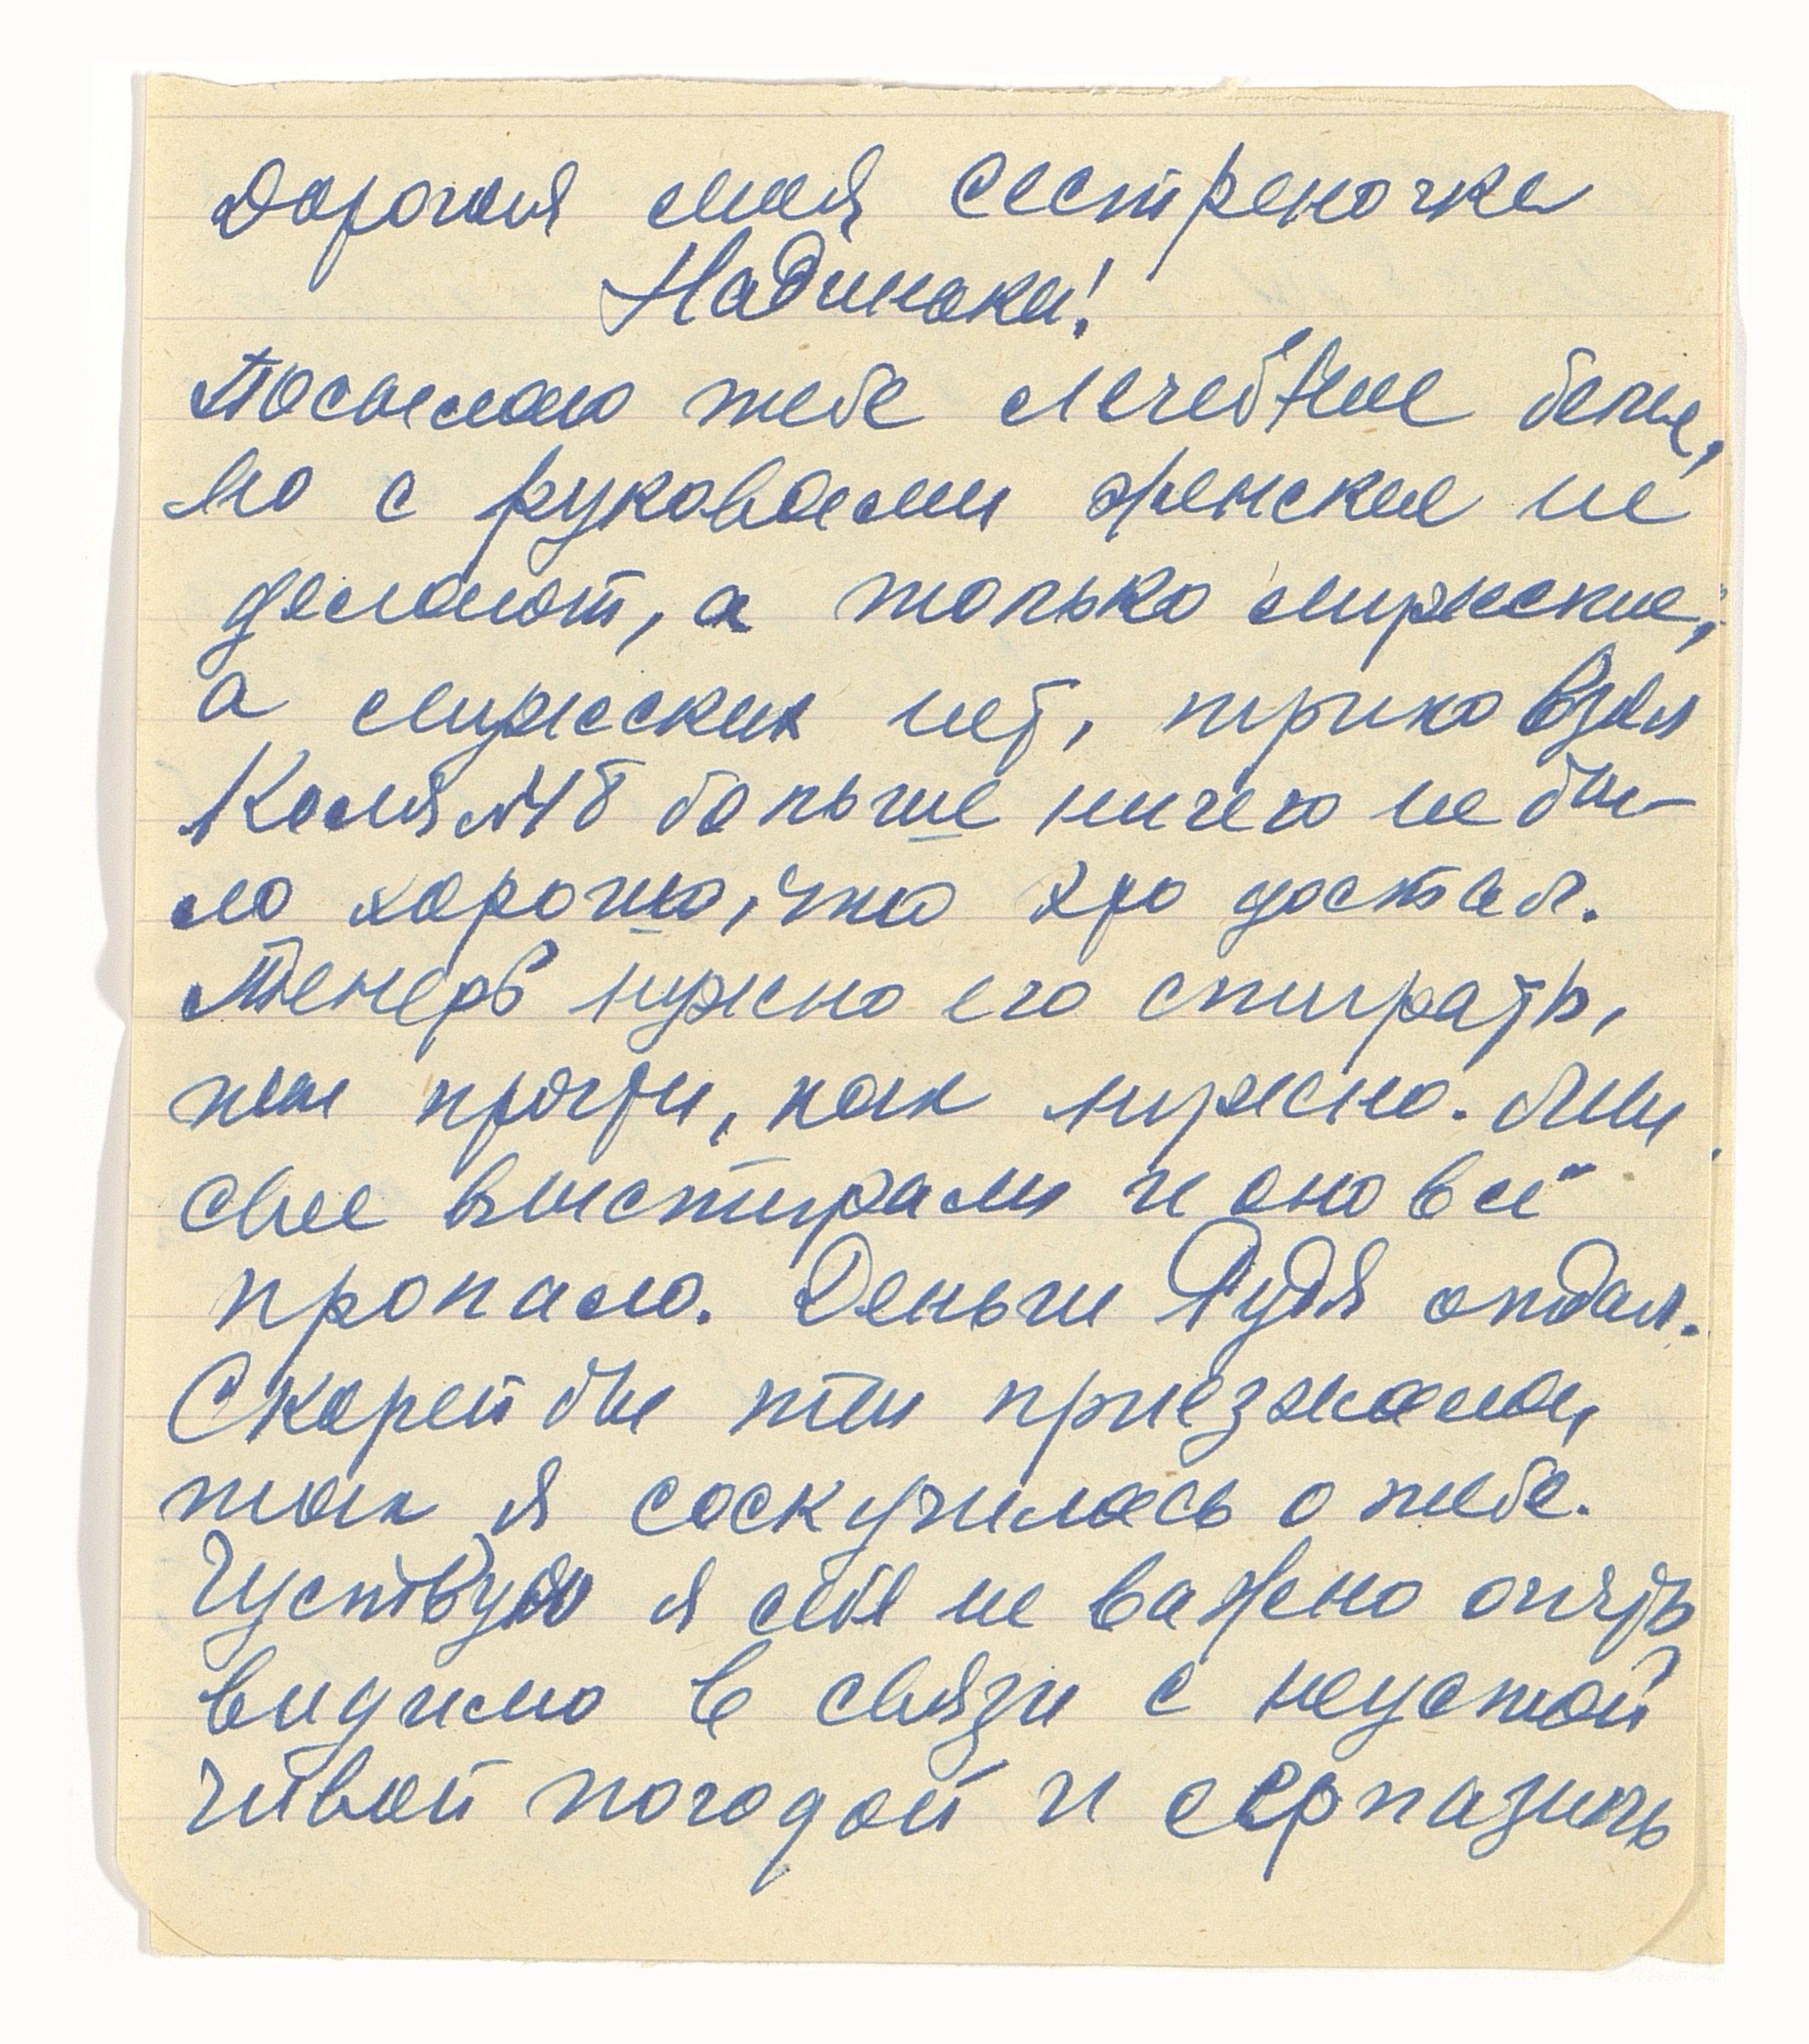 Дорогая моя сестреночка
Надинька!
Посылаю тебе лечебное белье,
но с рукавами женские не
делают, а только мужские,
а мужских нет, трико взял
Коля №48 больше ничего не бы-
ло хорошо, что это достал.
Теперь нужно его стирать,
ты прочти, как нужно. Мы
свое выстирали и оно все
пропало. Деньги Рудя отдал.
Скорей бы ты приезжала,
так я соскучилась о тебе.
Чуствую я себя не важно опять
видимо в связи с неустой
чивой погодой и серпазинь